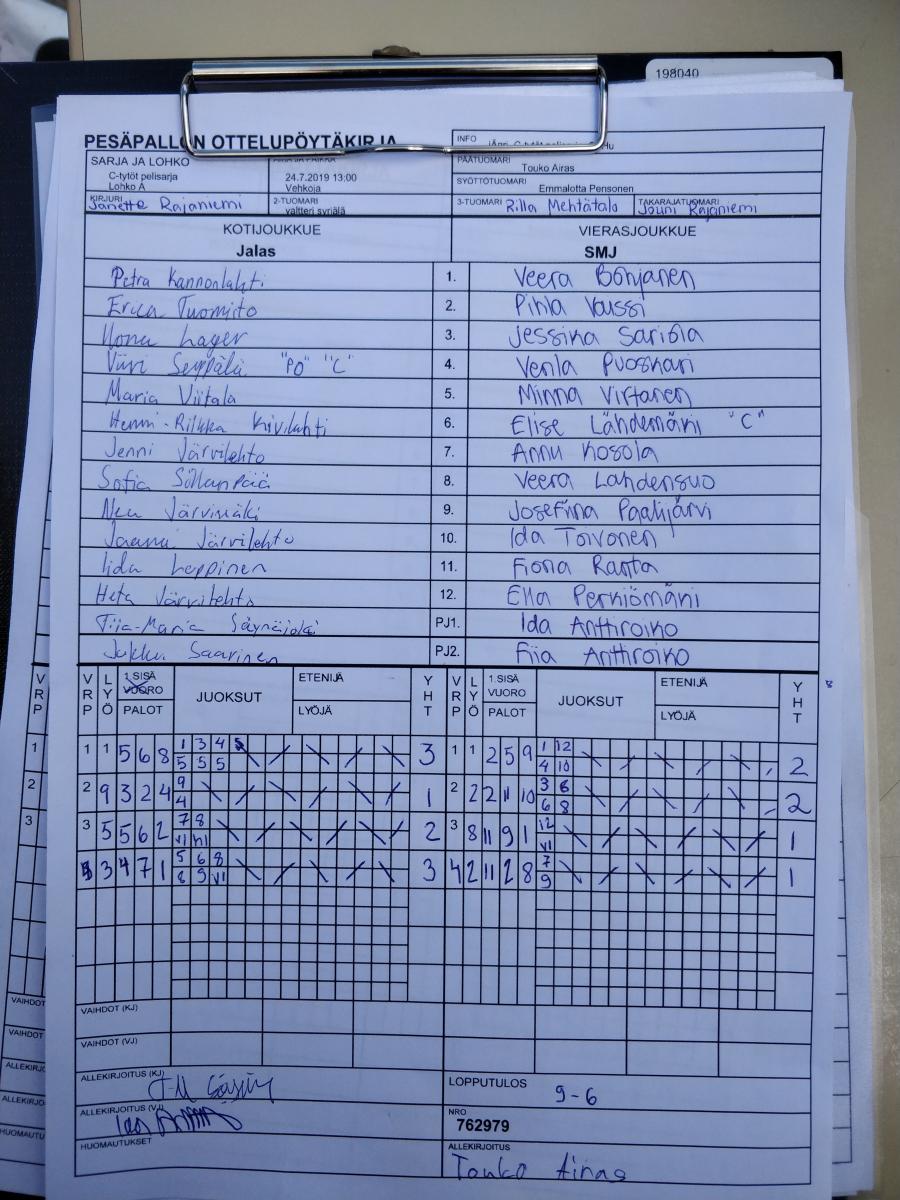 198040
PESÄPALLON OTTELUPÖYTÄKIRJA
INFO
SARJA JA LOHKO
C-tytöt pelisarja
Lohko A
24.7.2019 13:00
Vehkoja
PÄÄTUOMARI
Touko Airas
SYÖTTÖTUOMARI
Emmalotta Pensonen
KIRJURI Janette Rajaniemi
2-TUOMARI valtteri syrjälä
3-TUOMARI Rilla Mehtätalo
TAKARAJATUOMARI Jouni Rajaniemi
KOTIJOUKKUE VIERASJOUKKUE
Jalas SMJ
Petra Kannonlahti 1. Veera Bohjanen
Erica Tuomisto 2. Pinla Vaissi
Ilona Lager 3. Jessina Sariola
Viivi Seppälä "PO" "C" 4. Venla Puoskari
Maria Viitala 5. Minna Virtanen
Henni-Riikka Kivilahti 6. Elise Lähdemäki "C"
Jenni Järvilehto 7. Annu Kosola
Sofia Sillanpää 8. Veera Lahdensuo
Nea Järvimäki 9. Josefina Paalijärvi
Jaana Järvilehto 10. Ida Toivonen
Iida Leppinen 11. Fiona Ranta
Heta Järvilehto 12. Ella Perkiömäki
Tiia-Maria Säynäjoki PJ1. Ida Anttiroiko
Jukka Saarinen PJ2. Fiia Anttiroiko
VRP LYÖ 1.SISÄ VUORO PALOT JUOKSUT ETENIJÄ LYÖJÄ YHT VRP LYÖ 1.SISÄ VUORO PALOT JUOKSUT ETENIJÄ LYÖJÄ YHT
1 1 5 6 8 1 3 4 3 1 1 2 5 9 1 12 2
5 5 5 4 10
2 9 3 2 4 9 1 2 2 2 11 10 3 6 2
4 6 8
3 5 5 6 2 7 8 2 3 8 11 9 1 12 1
V1
3 4 7 1 5 6 8 3 4 2 11 2 8 7 1
8 9 V1 9
VAIHDOT (KJ)
VAIHDOT (VJ)
ALLEKIRJOITUS (KJ)
LOPPUTULOS
9-6
ALLEKIRJOITUS (VJ)
NRO
762979
HUOMAUTUKSET
ALLEKIRJOITUS
Touko Airas